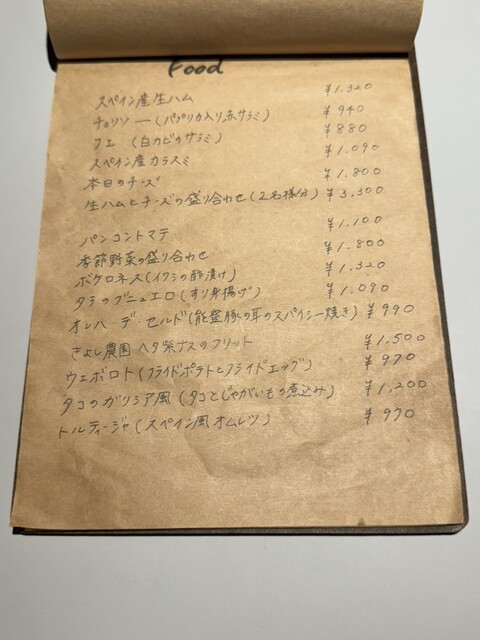 Food
スペイン産生ハム ¥1.320
チョリソー(パプリカ入り赤サラミ) ¥940
フエ (白カビのサラミ) ¥880
スペイン産カラスミ ¥1.090
本日のチーズ ¥1.800
生ハムとチーズの盛り合わせ(2名様分) ¥3,300
パンコントマテ ¥1.100
季節野菜の盛り合わせ ¥1.800
ボケロネス(イワシの酢漬け) ¥1.320
タラのブニュエロ(すり身揚げ) ¥1.090
オレハ デ・セルド(能登豚の耳のスパイシー焼き) ¥990
きよし農園 ヘタ紫ナスのフリット ¥1,500
ウェボロト(フライドポテトとフライドエッグ) ¥970
タコのガリシア風(タコとじゃがいもの煮込み) ¥1,200
トルティージャ(スペイン風オムレツ) ¥970